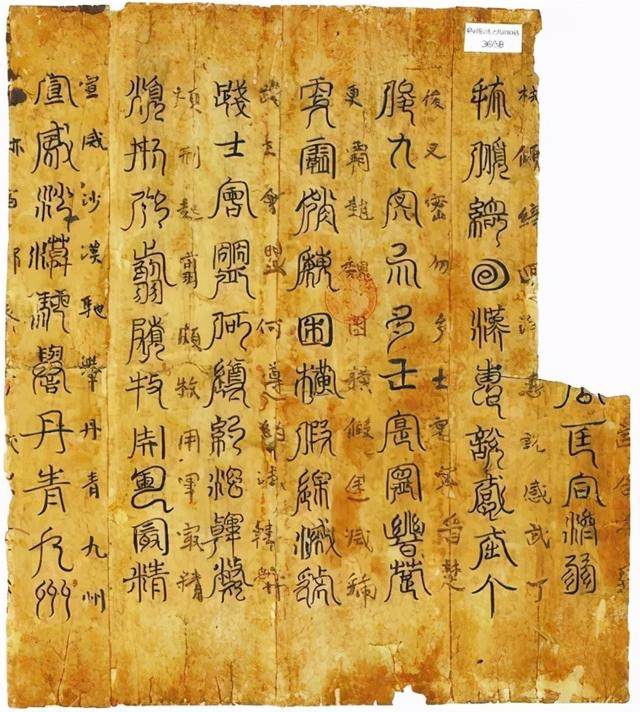 3658
公匡合濟弱
扶傾綺迴漢惠說感武丁
扶傾綺回漢惠說感武丁
俊乂密勿多士寔寧晉楚
俊乂密勿多士寔寧晉楚
更霸趙魏困橫假途滅虢
更霸趙魏困橫假途滅虢
踐土會盟何遵約法韓弊
踐土會盟何遵約法韓弊
煩刑起翦頗牧用軍最精
煩刑起翦頗牧用軍最精
宣威沙漠馳譽丹青九州
宣威沙漠馳譽丹青九州
百郡